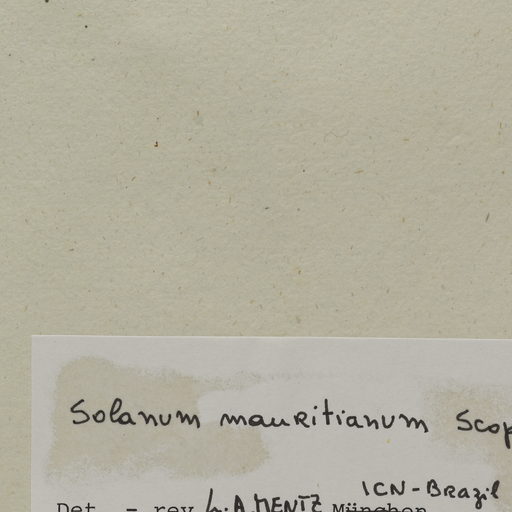 Solanum mauritianum Scop
ICN-Brazil
Det. - rev. L.A. MENTZ München